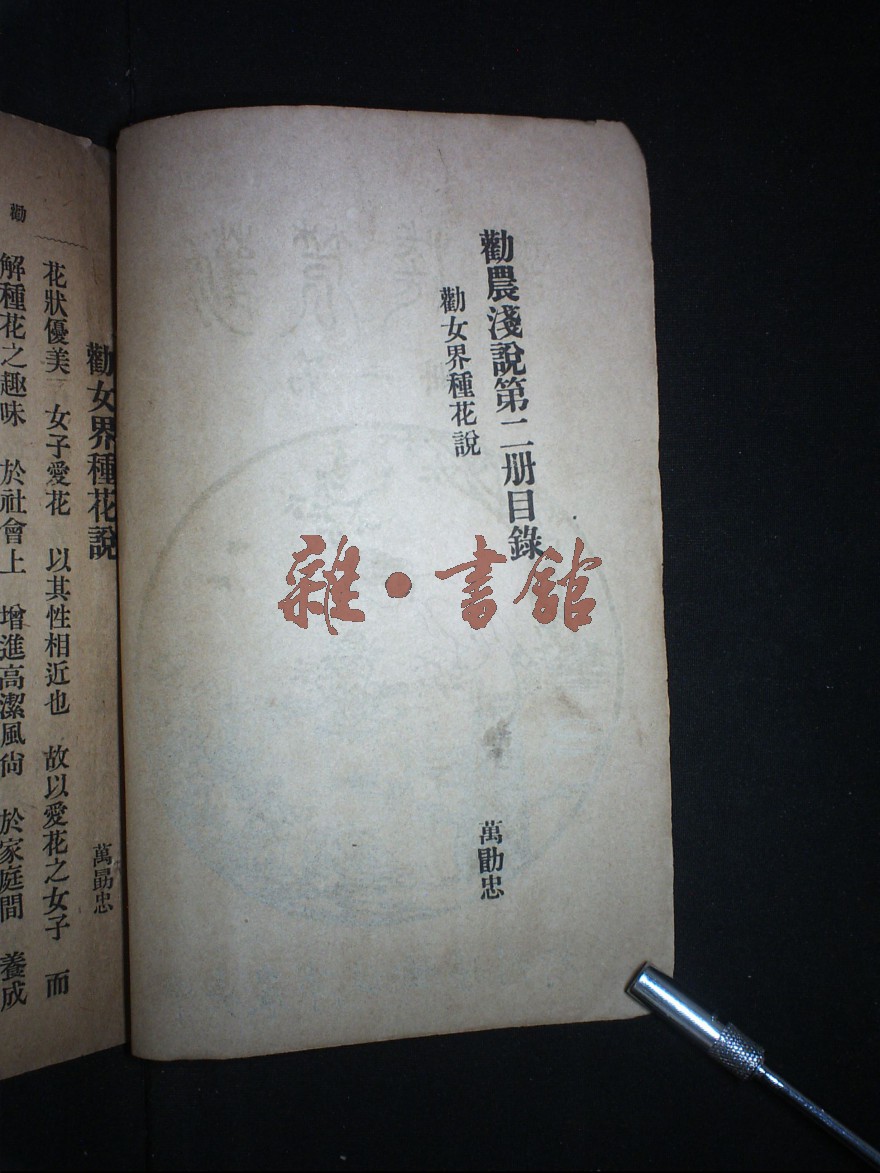 勸農淺說第二册目錄
勸女界種花說
萬勖忠
雜·書館
勸
勸女界種花說
萬勗忠
花狀優美 女子愛花 以其性相近也 故以愛花之女子 而
解種花之趣味 於社會上 增進高潔風尙 於家庭間 養成